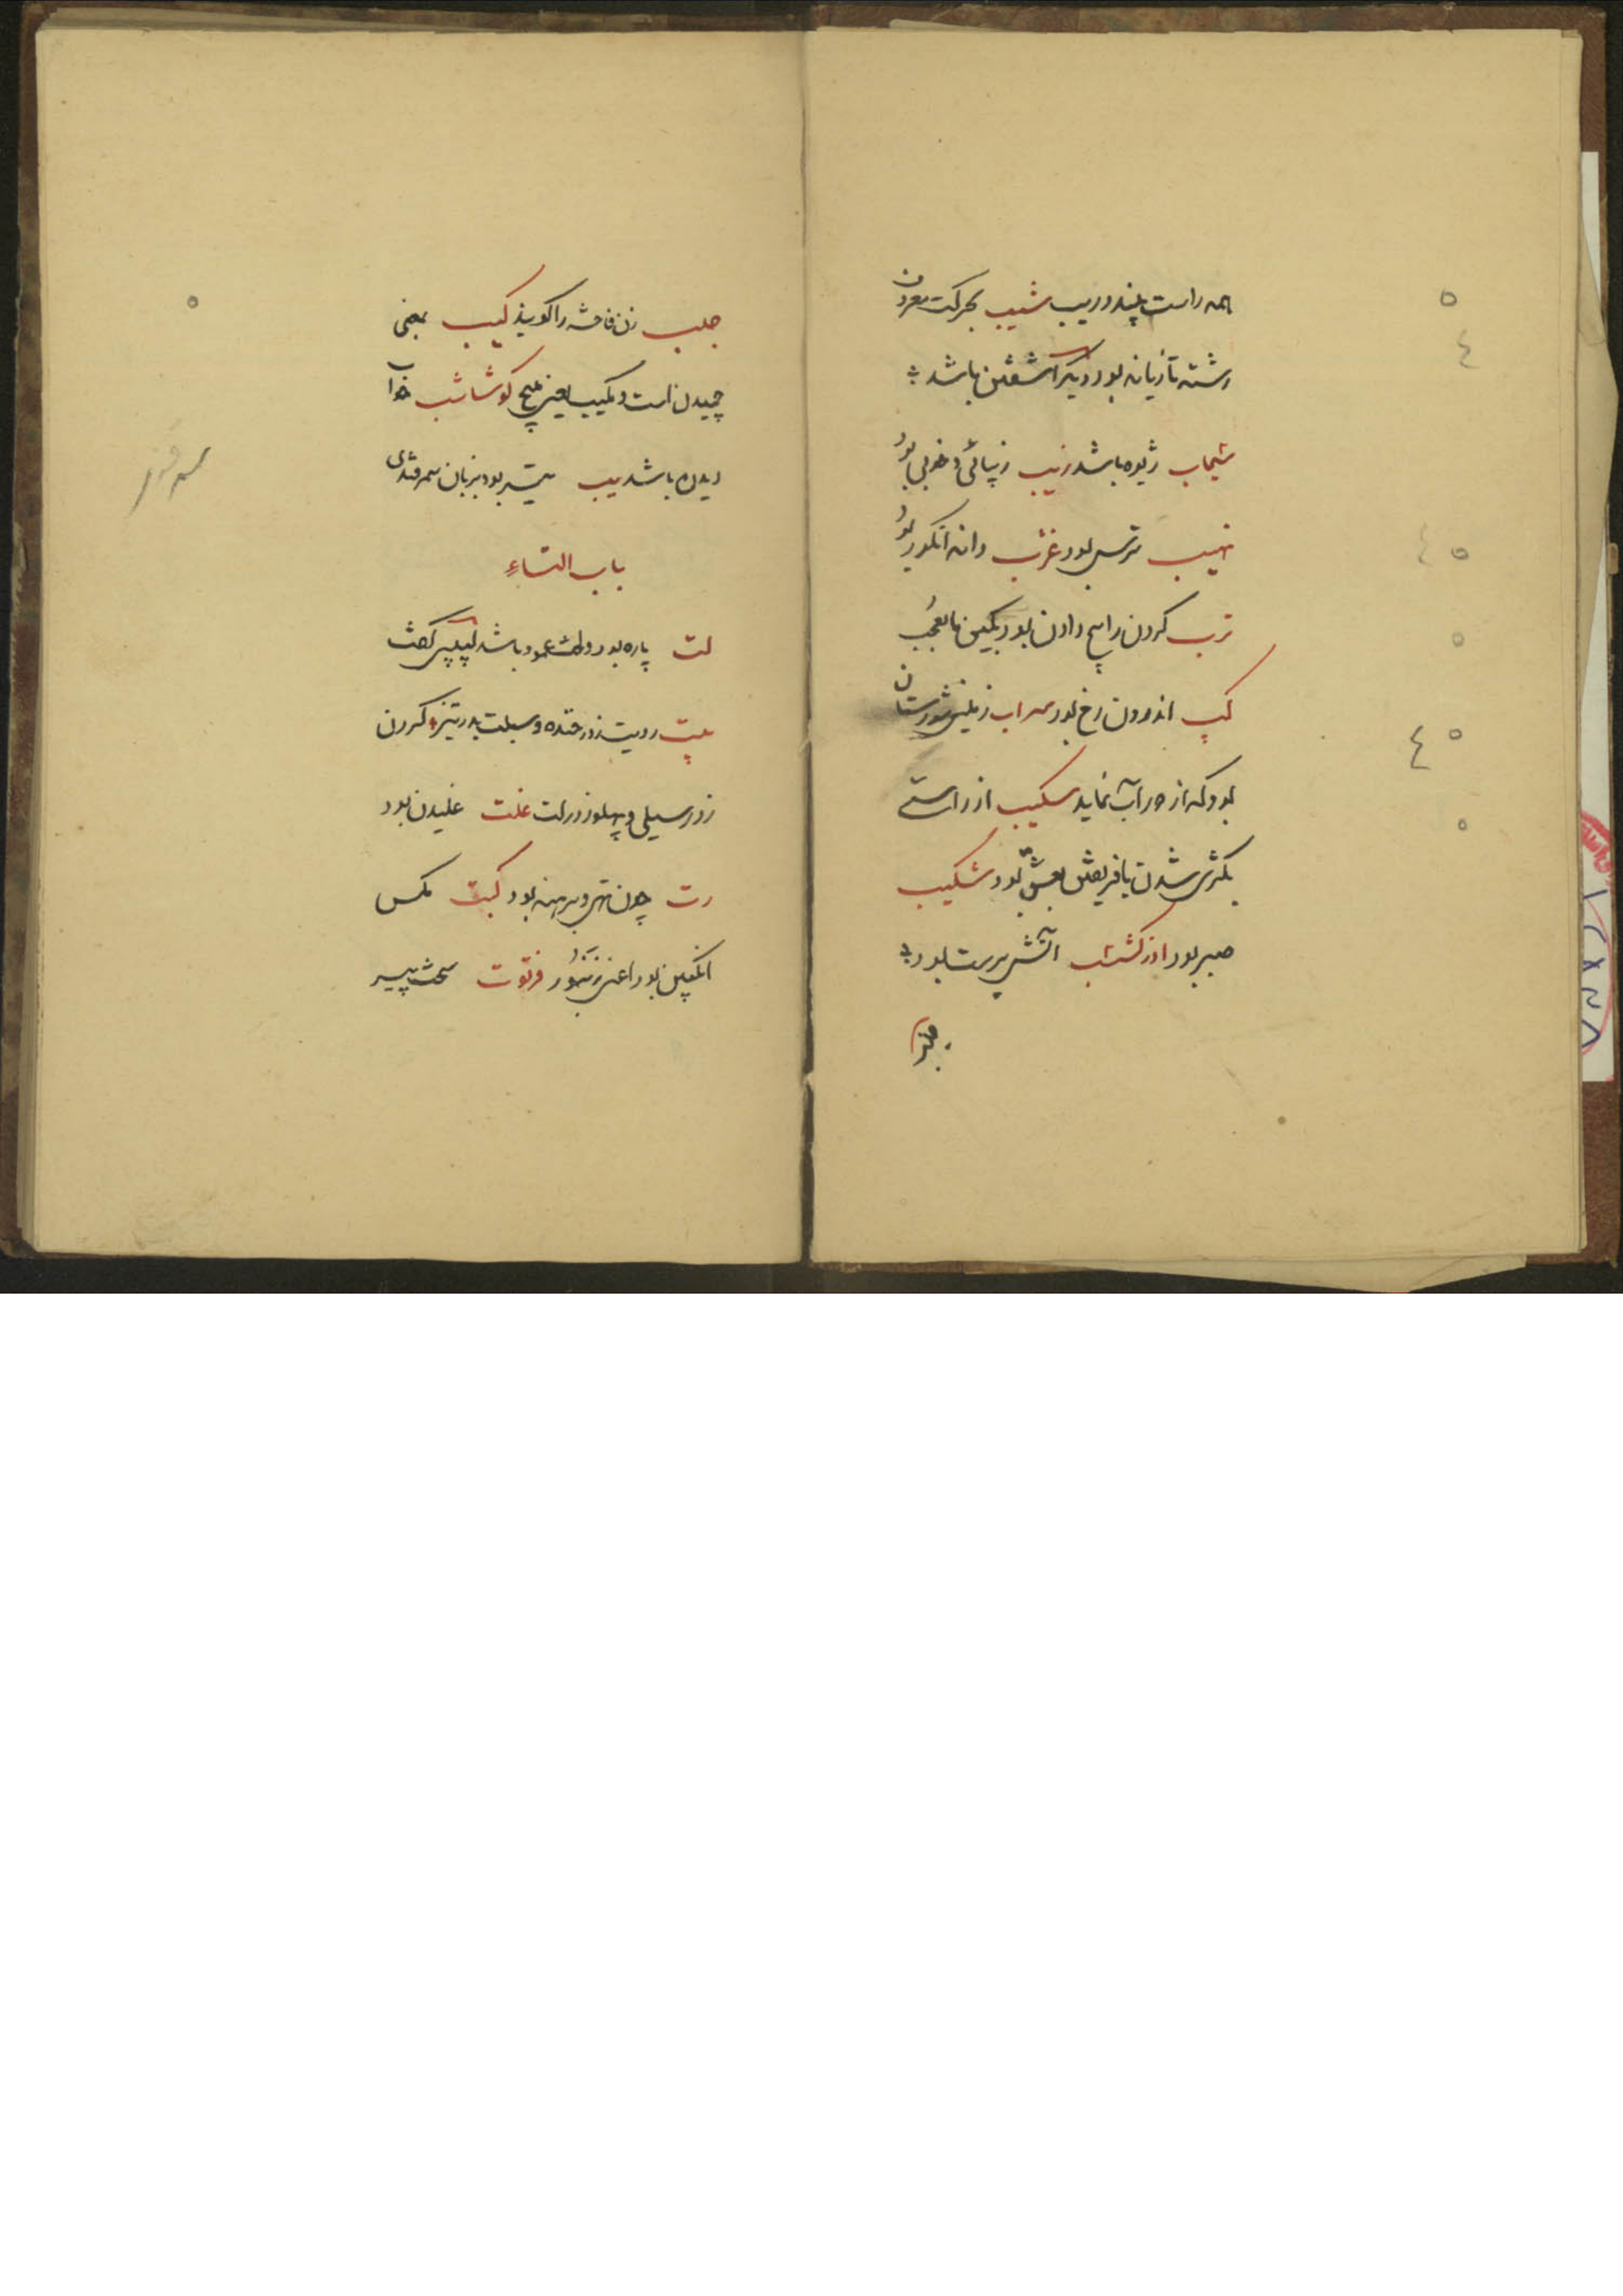 همه راست بیند وریب شیب بحرکت معروف
رشته تازیانه بود دیگر آشفتن باشد
شیخاب ژیوه باشد زیب زیبائی و خوبی بود
نهیب ترس بود غژب دانه انگور بود
ترب کردن
کپ اندرون رخ بود سراب زمین شورستان
بود که از دور آب نماید سکیب از راستی
بکژی شدن یا فریفتن بعشق بود شکیب
صبر بود آذرگشتب آتش پرست بود
جلب زن فاحشه را گویند کیب بمعنی
چمیدن است و مکیب یعنی مپیچ گوشاشب خواب
دیدن باشد یب تیر بود بزبان سمرقندی
باب التاء
لت پاره بود ولت عمود باشد
زور سیلی و پهلو زور لت غلت غلیدن بود
رت چون تهی و برهنه بود کبت مگس
انگبین بود اعنی زنبور فرتوت سخت پیر